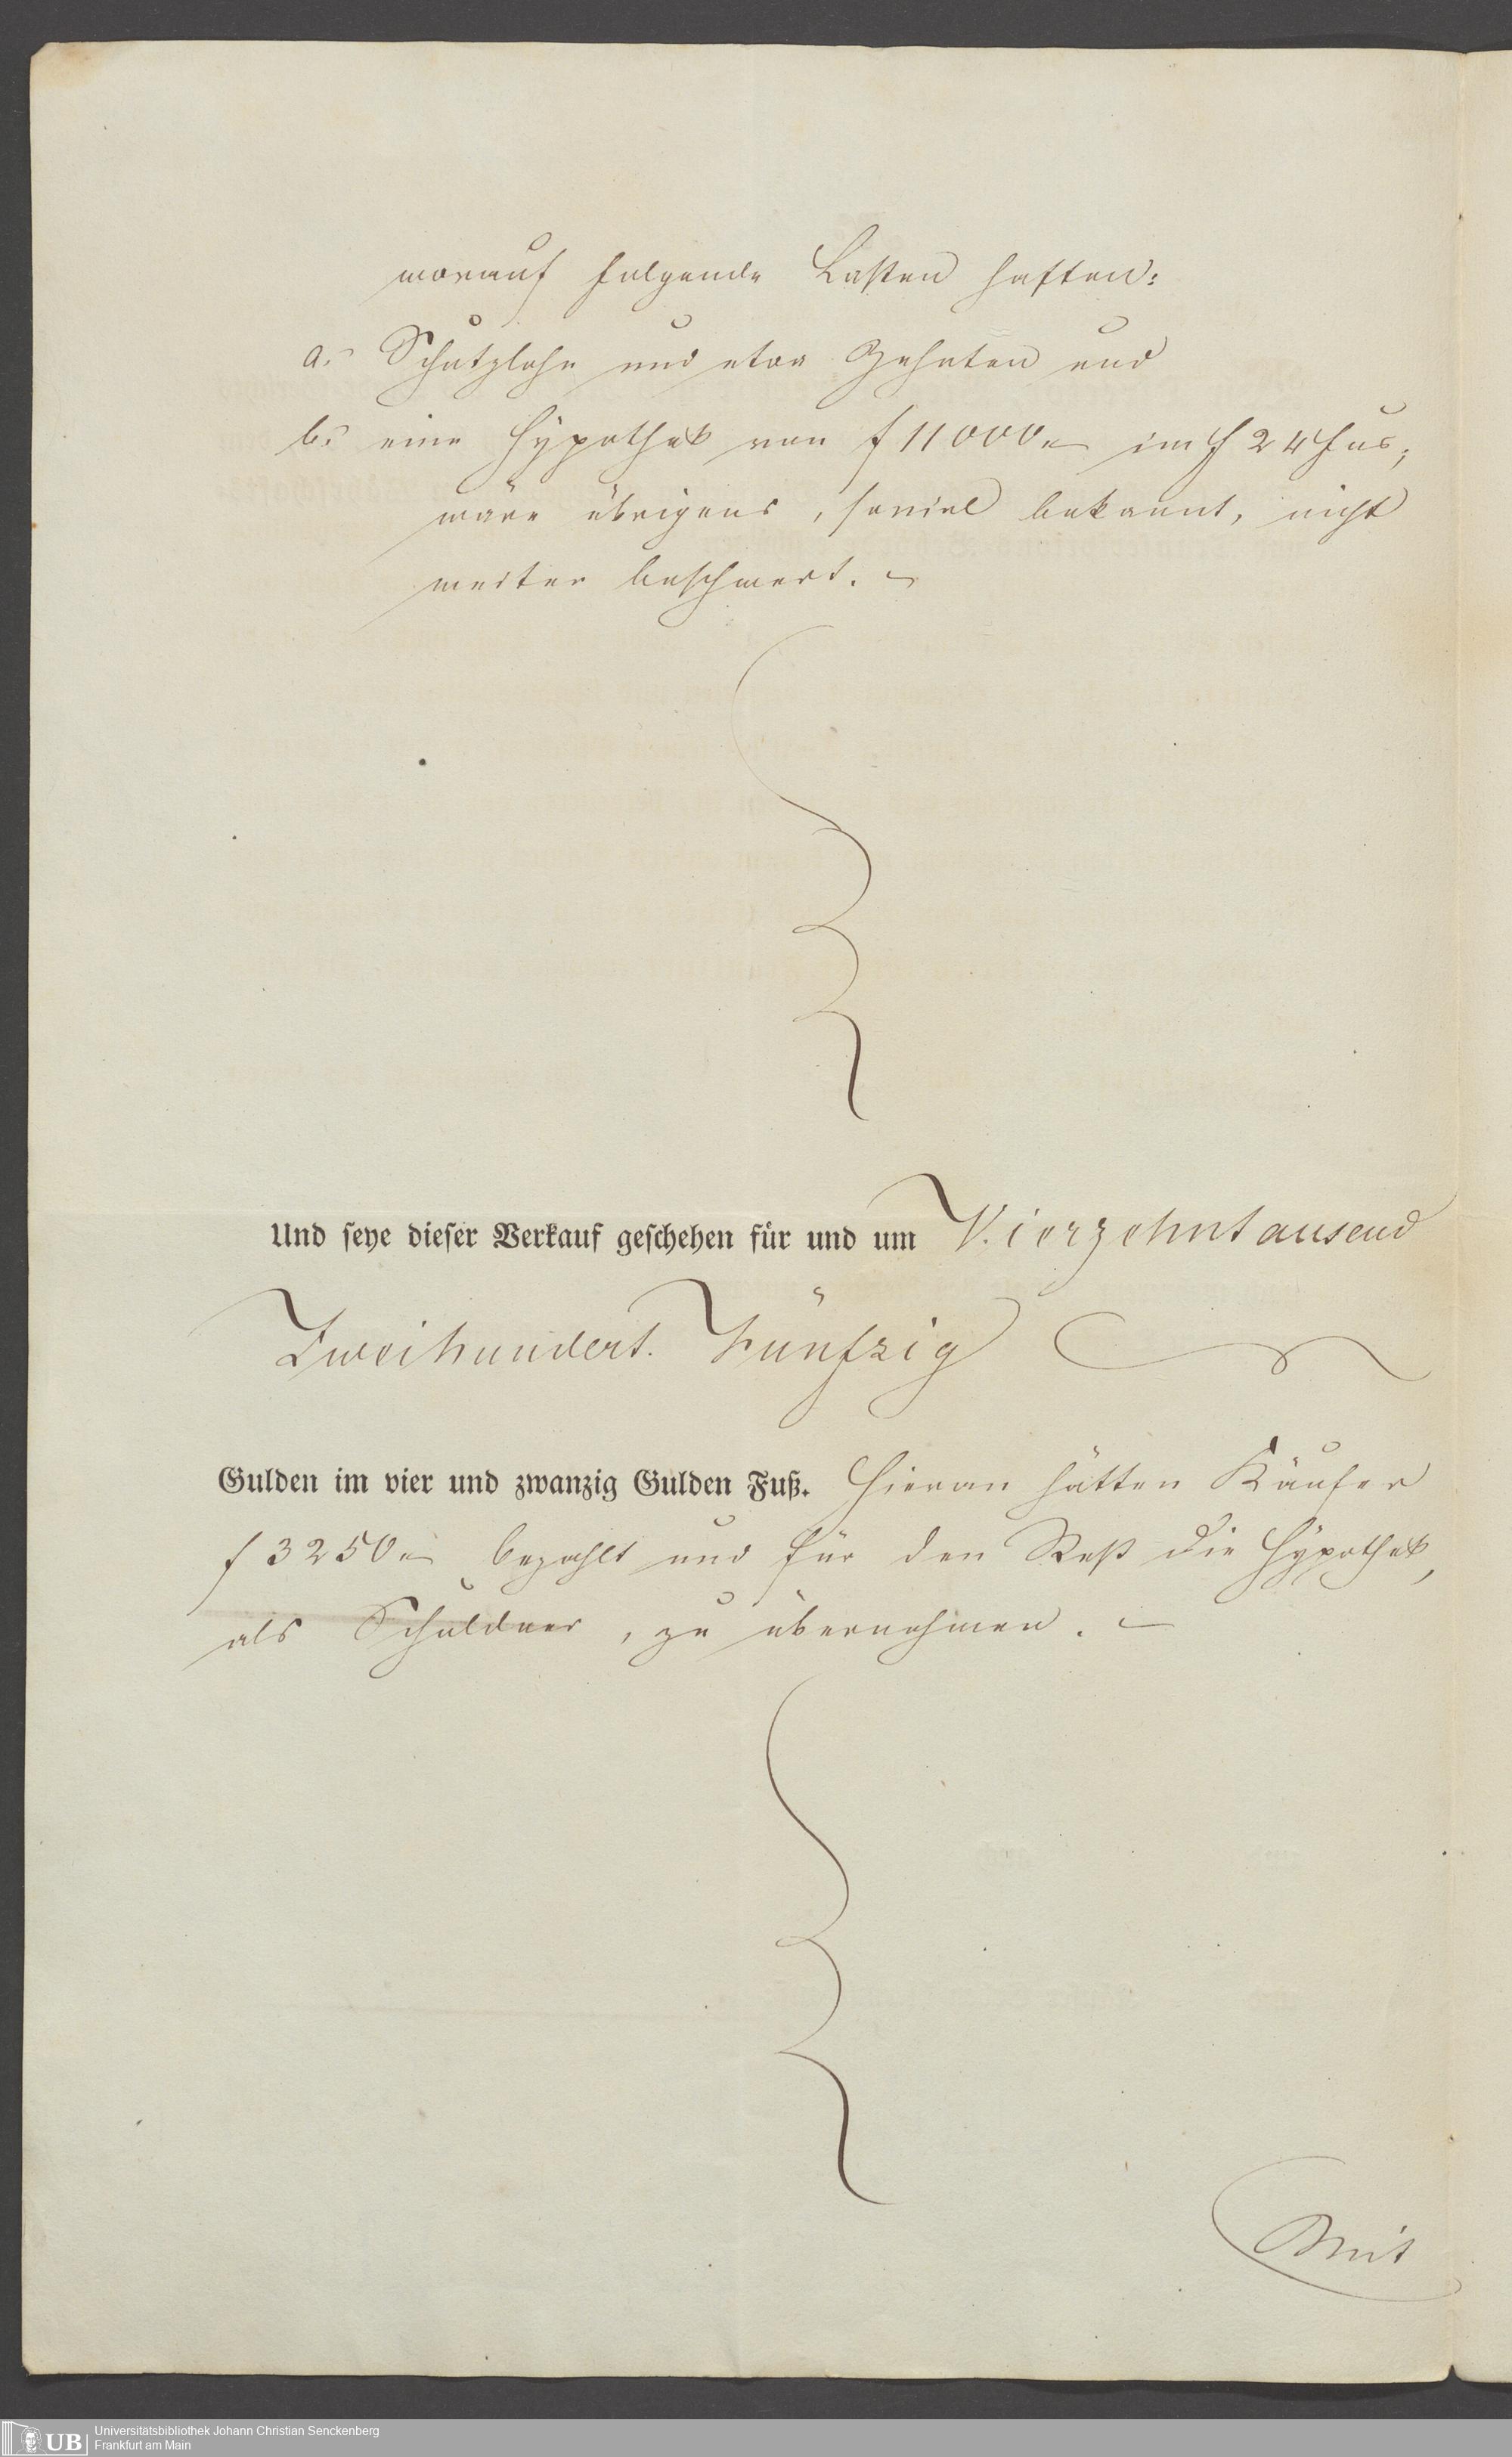 worauf folgende Lasten haften:
a. Schutzlohn und etwa Zehnten und
b. eine Hypothek von f 11000 im f 24 Fus,
wäre übrigens, soviel bekannt, nicht
weiter beschwert.
Und seye dieser Verkauf geschehen für und um Vierzehntausend
Zweihundert Fünfzig
Gulden im vier und zwanzig Gulden Fuß. Hieran hätten Käufer
f 3250 bezahlt und für den Rest die Hypothek,
als Schuldner, zu übernehmen.
Mit
UB
Universitätsbibliothek Johann Christian Senckenberg
Frankfurt am Main